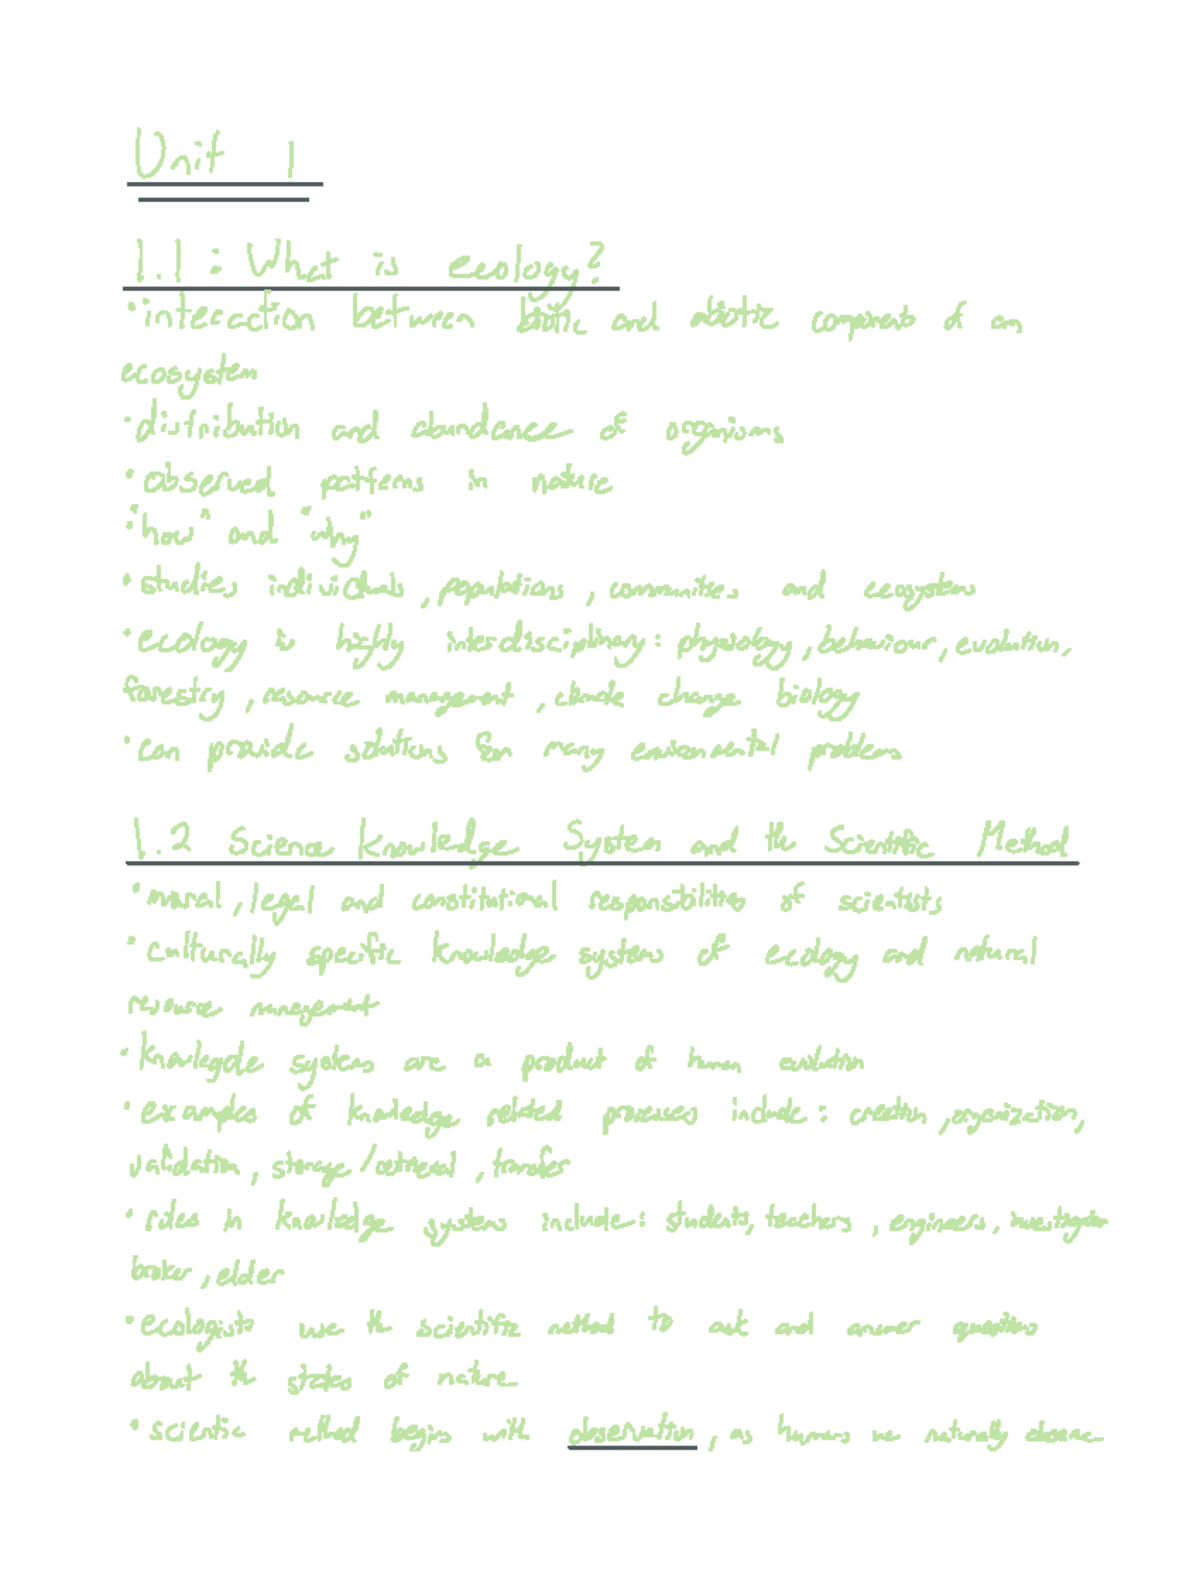 Unit 1
1.1 : What is ecology?
• interaction between biotic and abiotic components of an
ecosystem
• distribution and abundance of organisms
• observed patterns in nature
• "how" and "why"
• studies individuals, populations, communities and ecosystems
• ecology is highly interdisciplinary: physiology, behaviour, evolution,
forestry, resource management, climate change biology
• can provide solutions for many environmental problems
1.2 Science Knowledge System and the Scientific Method
• moral, legal and constitutional responsibilities of scientists
• culturally specific knowledge systems of ecology and natural
resource management
• knowlegde systems are a product of human evolution
• examples of knowledge related processes include: creation, organization,
validation, storage/retrieval, transfer
• roles in knowledge systems include: students, teachers, engineers, investigator
broker, elder
• ecologists use the scientific method to ask and answer questions
about the states of nature
• scientific method begins with observation, as humans we naturally observe